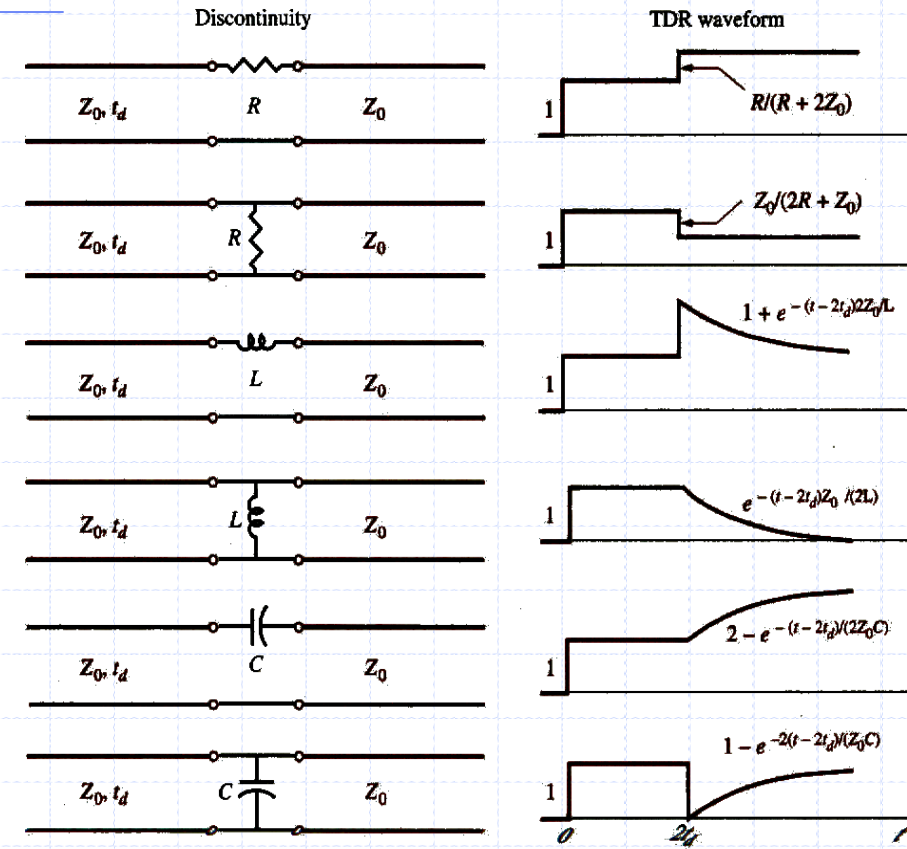 Discontinuity TDR waveform
Z₀, t_d R Z₀ 1 R/(R + 2Z₀)
Z₀, t_d R Z₀ 1 Z₀/(2R + Z₀)
Z₀, t_d L Z₀ 1 1 + e^–(t – 2t_d)2Z₀/L
Z₀, t_d L Z₀ 1 e^–(t – 2t_d)Z₀ /(2L)
Z₀, t_d C Z₀ 1 2 – e^–(t – 2t_d)/(2Z₀C)
Z₀, t_d C Z₀ 1 1 – e^–2(t – 2t_d)/(Z₀C)
0 2t_d t